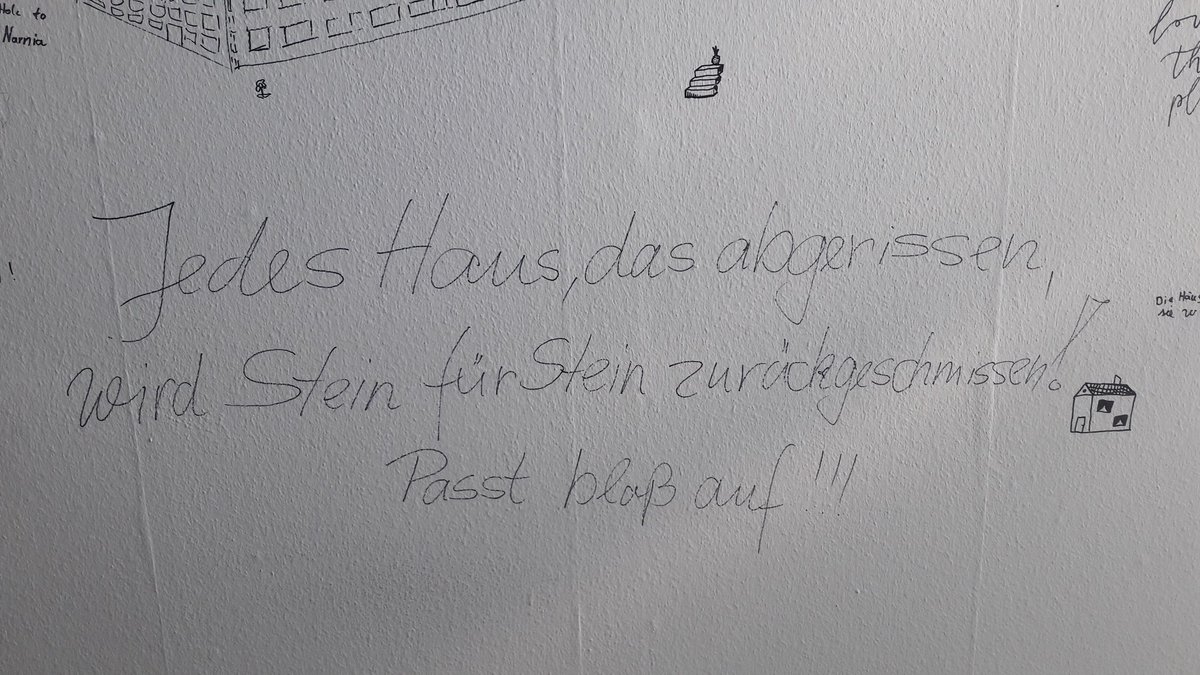 Hole to
Narnia
lov
th
pl
Jedes Haus, das abgerissen,
wird Stein für Stein zurückgeschmissen!
Passt bloß auf!!!
!
Die Häus
sie w